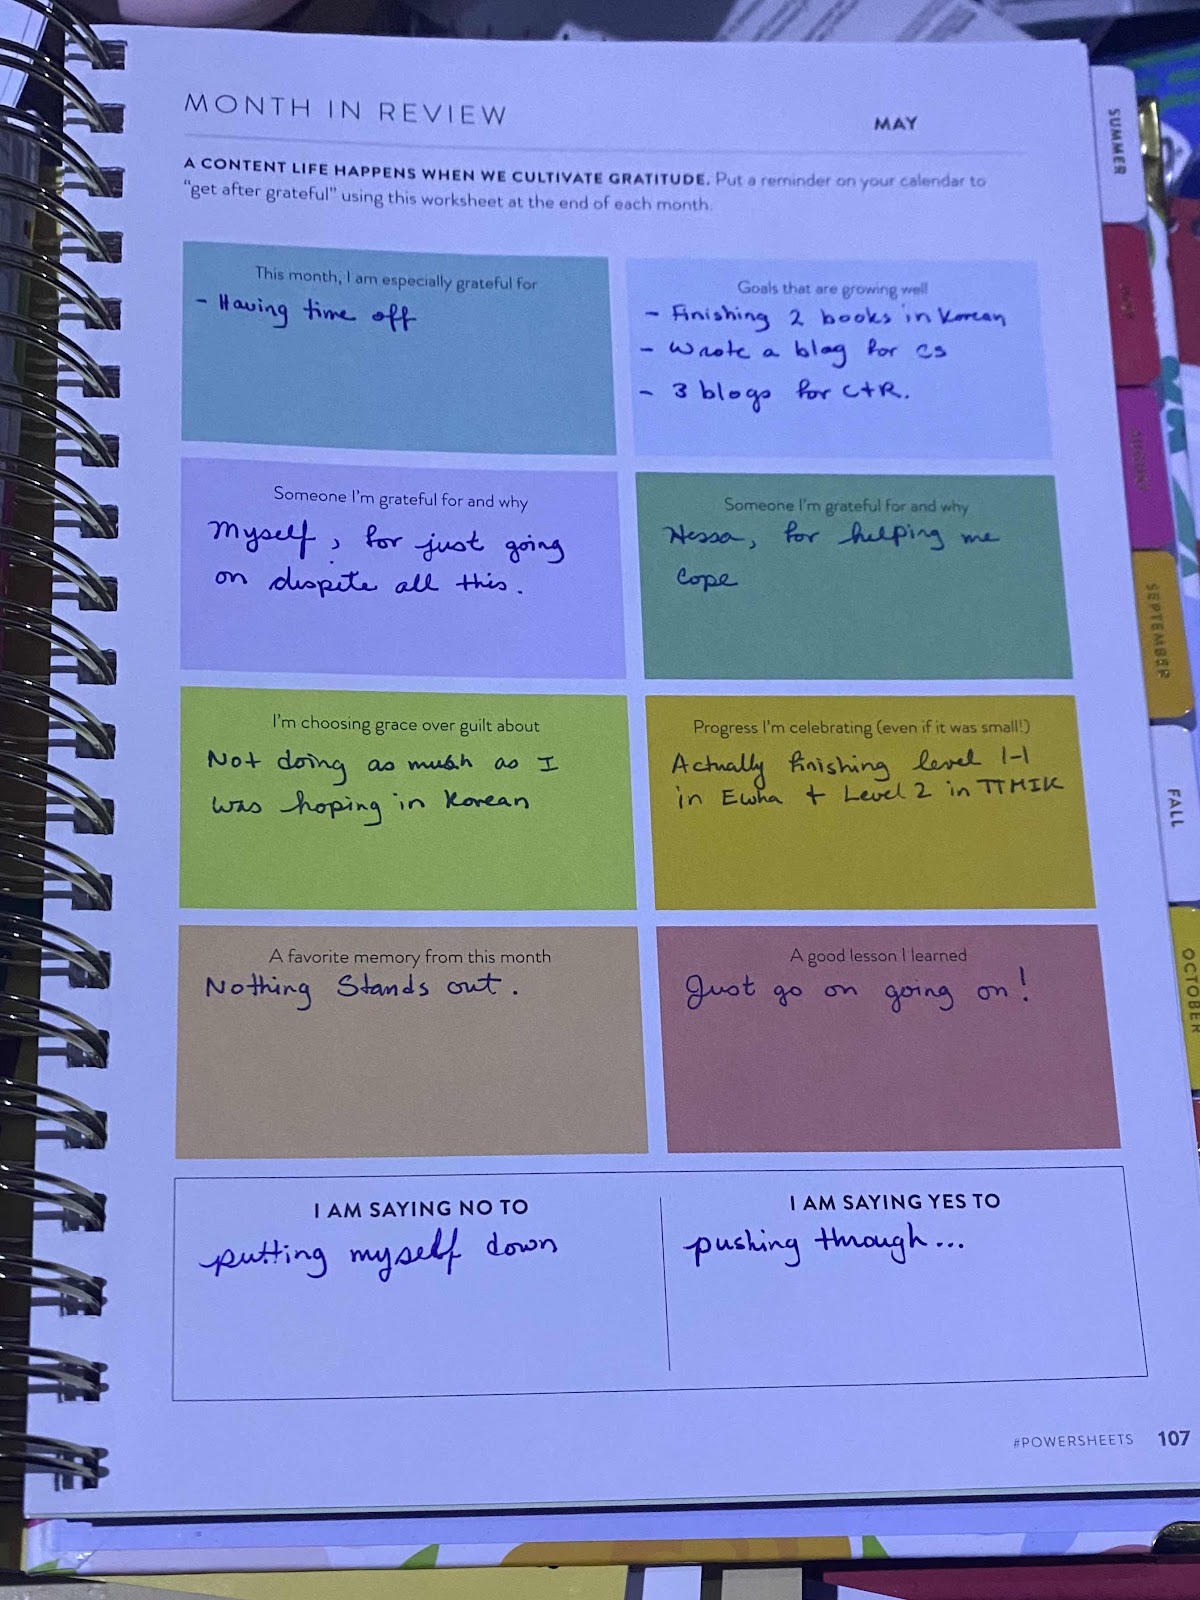 MONTH IN REVIEW
MAY
A CONTENT LIFE HAPPENS WHEN WE CULTIVATE GRATITUDE. Put a reminder on your calendar to
“get after grateful” using this worksheet at the end of each month.
This month, I am especially grateful for
- Having time off
Goals that are growing well
- Finishing 2 books in Korean
- Wrote a blog for CS
- 3 blogs for C+R.
Someone I'm grateful for and why
Myself, for just going
on dispite all this.
Someone I'm grateful for and why
Hessa, for helping me
cope
I'm choosing grace over guilt about
Not doing as mush as I
was hoping in Korean
Progress I'm celebrating (even if it was small!)
Actually finishing level 1-1
in Ewha + Level 2 in TTMIK
A favorite memory from this month
Nothing Stands out.
A good lesson I learned
Just go on going on!
I AM SAYING NO TO
putting myself down
I AM SAYING YES TO
pushing through...
#POWERSHEETS 107
SUMMER
AUGUST
SEPTEMBER
FALL
OCTOBER